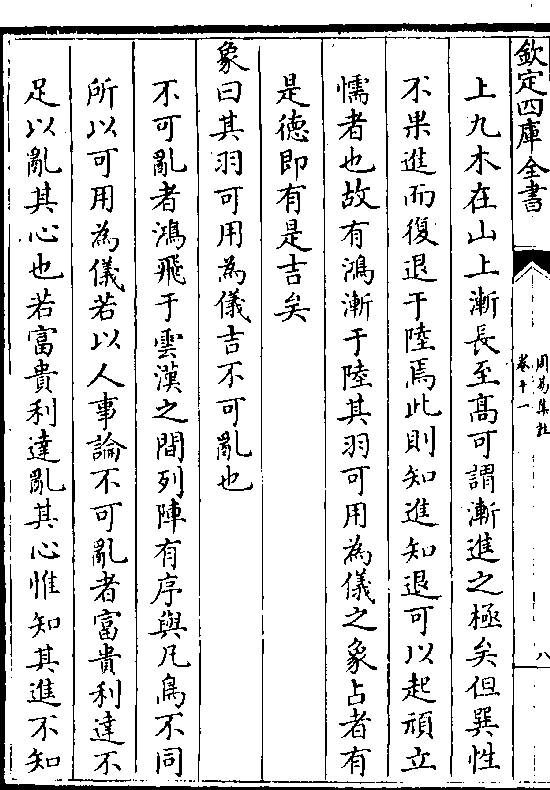 欽定四庫全書
周易集註
卷十一
八
上九木在山上漸長至髙可謂漸進之極矣但巽性
不果進而復退于陸焉此則知進知退可以起頑立
懦者也故有鴻漸于陸其羽可用為儀之象占者有
是德即有是吉矣
象曰其羽可用為儀吉不可亂也
不可亂者鴻飛于雲漢之間列陣有序與凡鳥不同
所以可用為儀若以人事論不可亂者富貴利達不
足以亂其心也若富貴利達亂其心惟知其進不知